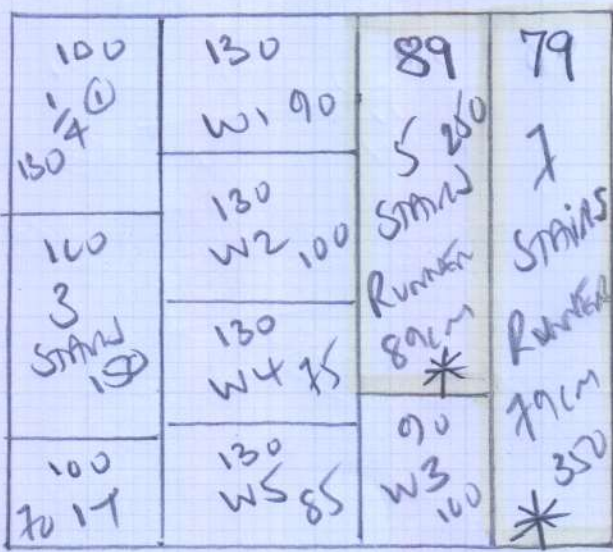 100
1/4 ①
130
100
3
STAIRS
150
100
70 1T
130
W1 90
130
W2 100
130
W4 75
130
W5 85
89
5 250
STAIRS
RUNNER
89CM
*
90
W3
100
79
7
STAIRS
RUNNER
79CM
350
*